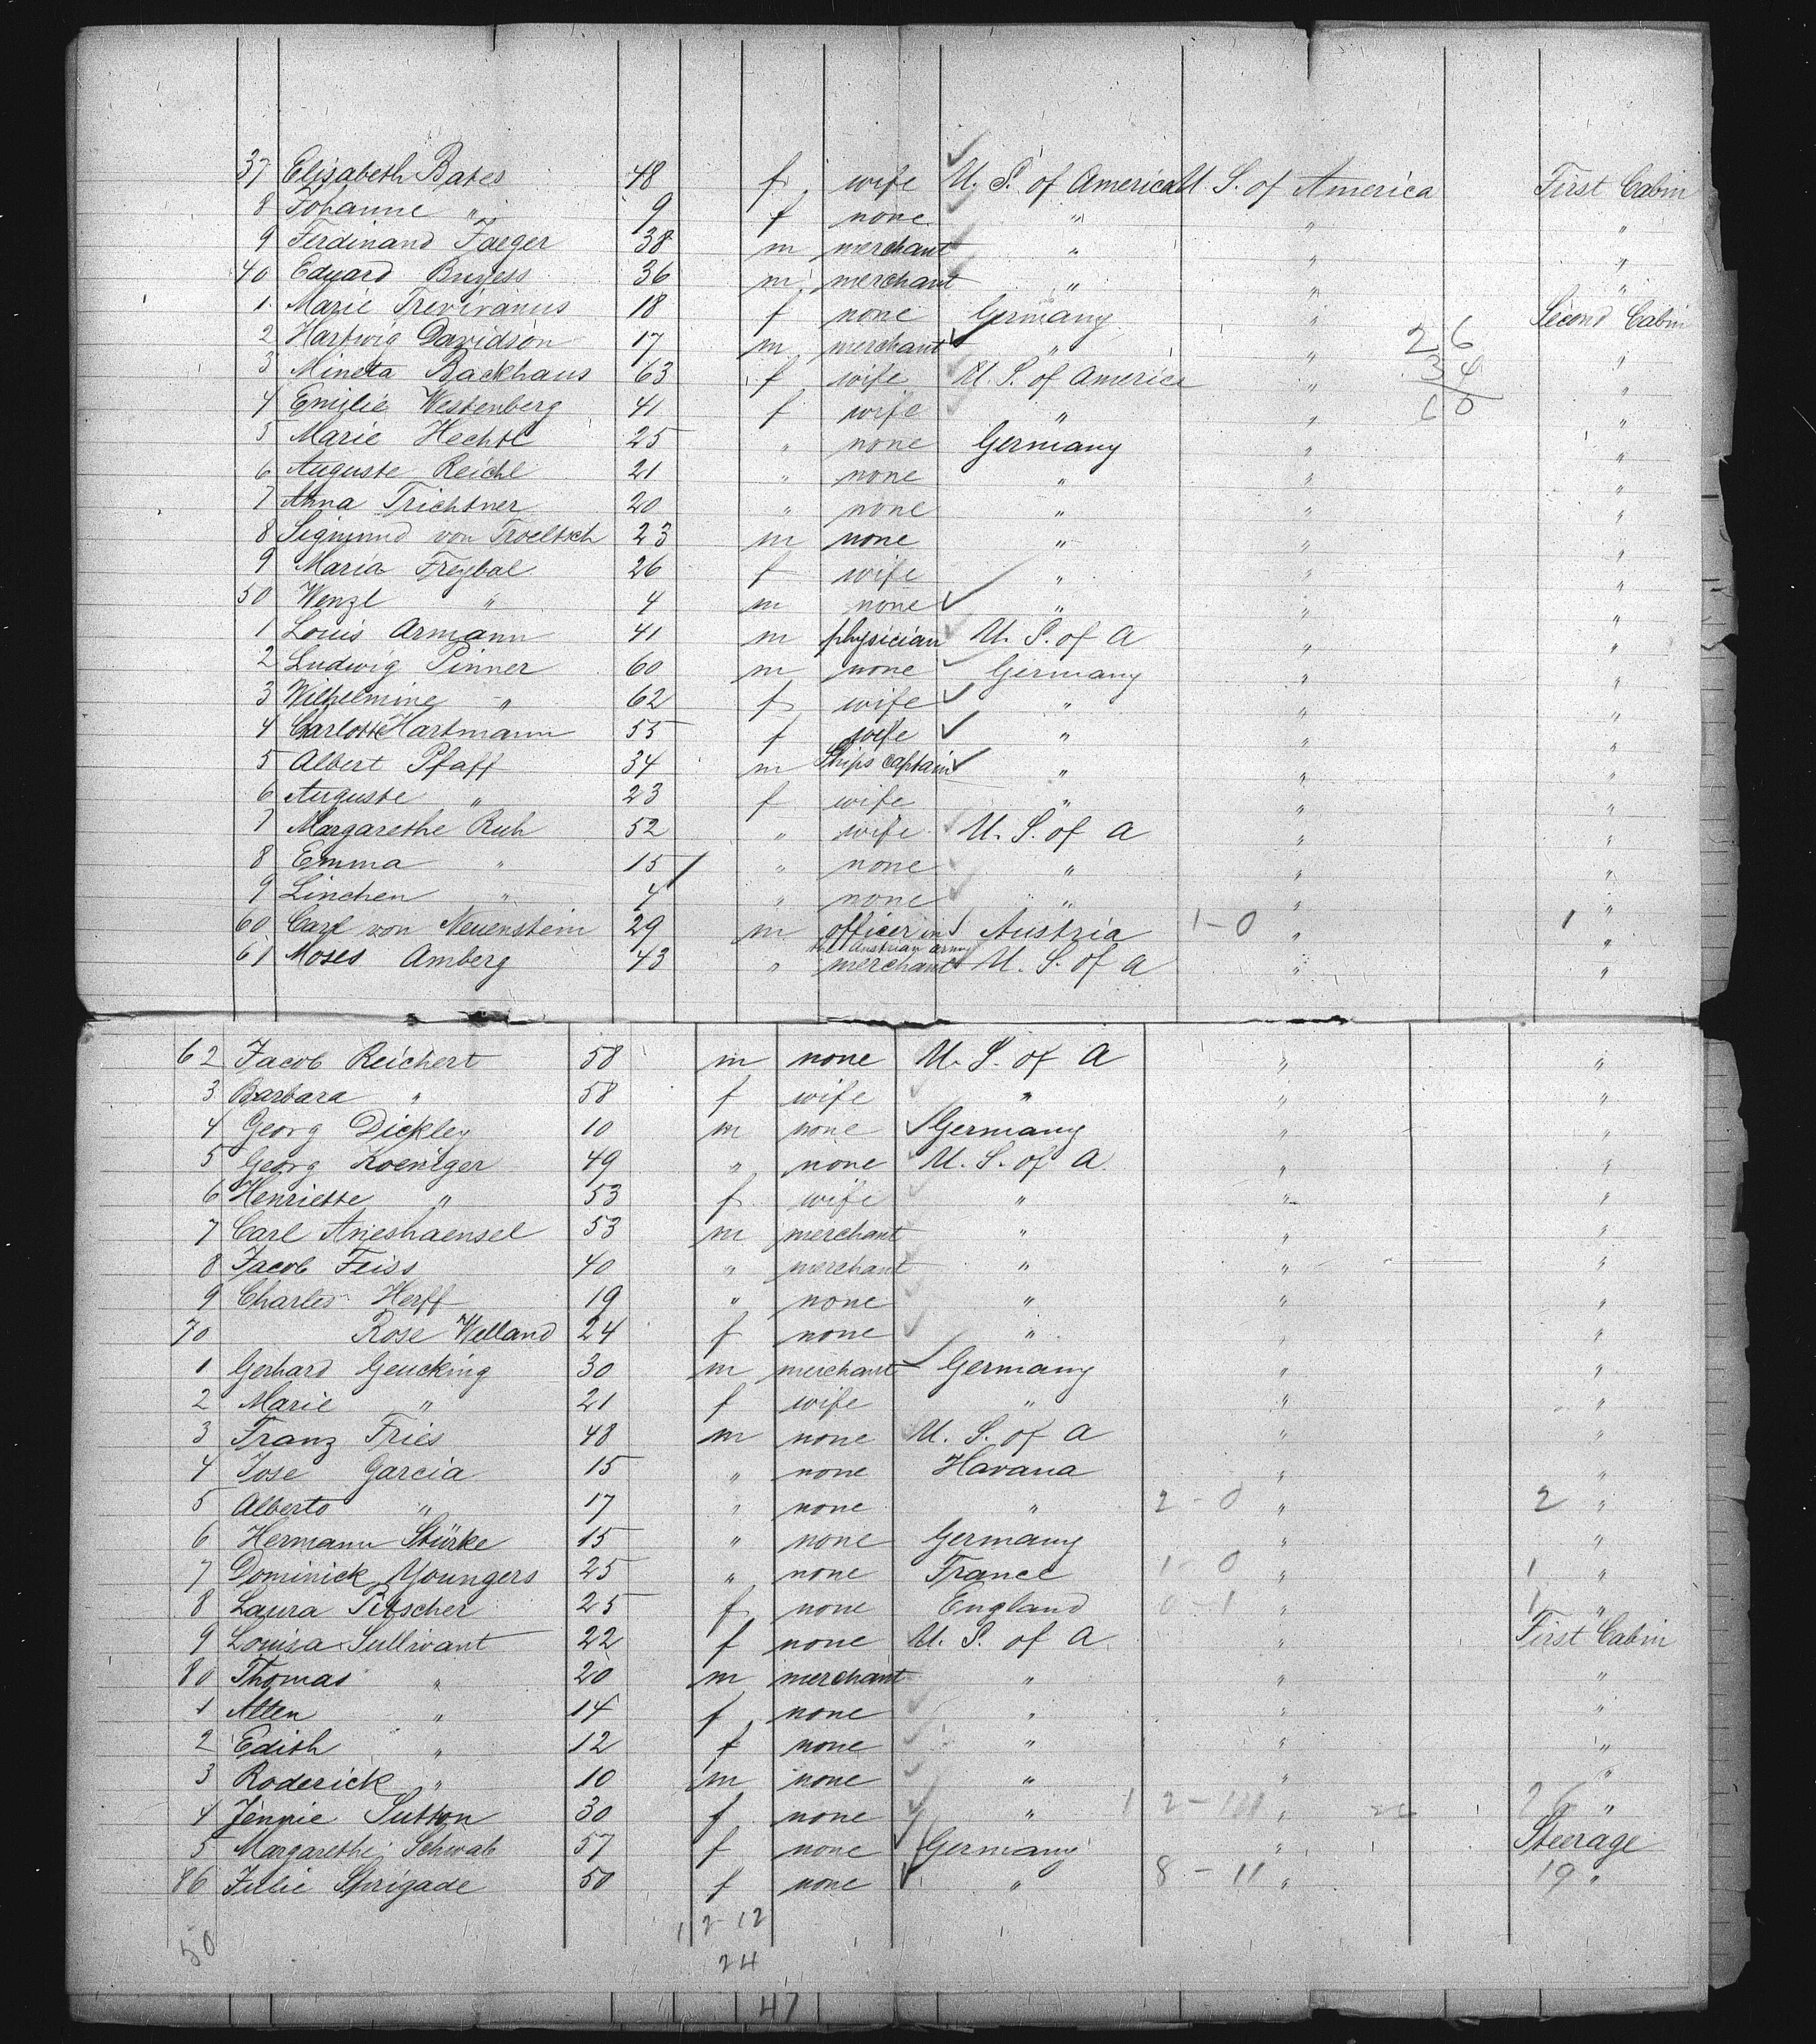 37 Elisabeth Bates 48 f wife U. S. of America U S. of America First Cabin
8 Johanne " 9 f none " " "
9 Ferdinand Jaeger 38 m merchant " " "
40 Eduard Buyess 36 m merchant " " "
1 Marie Trevivanus 18 f none Germany " Second Cabin
2 Hartwig Davidson 17 m merchant " " 26 "
3 Mineta Backhaus 63 f wife U. S. of America " 34 "
4 Emilie Westenberg 41 f wife " " 60 "
5 Marie Hechtl 25 " none Germany " "
6 Auguste Reichl 21 " none " " "
7 Anna Trichtner 20 " none " " "
8 Sigmund von Troeltsch 23 m none " " "
9 Maria Freybal 26 f wife " " "
50 Wenzl " 4 m none " " "
1 Louis Armann 41 m physician U. S. of A " "
2 Ludwig Pinner 60 m none Germany " "
3 Wilhelmine " 62 f wife " " "
4 Carlotte Hartmann 55 f wife " " "
5 Albert Pfaff 34 m Ships captain " " "
6 Auguste " 23 f wife " " "
7 Margarethe Ruh 52 " wife U. S. of A " "
8 Emma " 15 " none " " "
9 Linchen " 4 " none " " "
60 Carl von Neuenstein 29 m officer in Austria 1-0 " 1 "
the Austrian army
61 Moses Amberg 43 " merchant U. S. of A " "
62 Jacob Reichert 58 m none U. S. of A " "
3 Barbara " 58 f wife " " "
4 Georg Dickley 10 m none Germany " "
5 Georg Koeniger 49 " none U. S. of A " "
6 Henriette " 53 f wife " " "
7 Carl Aneshaensel 53 m merchant " " "
8 Jacob Feiss 40 " merchant " " "
9 Charles Herff 19 " none " " "
70 Rose Welland 24 f none " " "
1 Gerhard Geucking 30 m merchant Germany " "
2 Marie " 21 f wife " " "
3 Franz Fries 48 m none U. S. of A " "
4 Jose Garcia 15 " none Havana " "
5 Alberto " 17 " none " 2-0 " 2 "
6 Hermann Stürke 15 " none Germany " "
7 Dominick Youngers 25 " none France 1-0 " 1 "
8 Laura Pitscher 25 f none England 0-1 " 1 "
9 Louisa Sullivant 22 f none U. S. of A " First Cabin
80 Thomas " 20 m merchant " " "
1 Allen " 14 f none " " "
2 Edith " 12 f none " " "
3 Roderick " 10 m none " " "
4 Jennie Sutton 30 f none " " 26 "
5 Margarethe Schwab 57 f none Germany " Steerage
86 Julie Sprigade 50 f none " 8-11 " 19 "
50 12-12
24
47